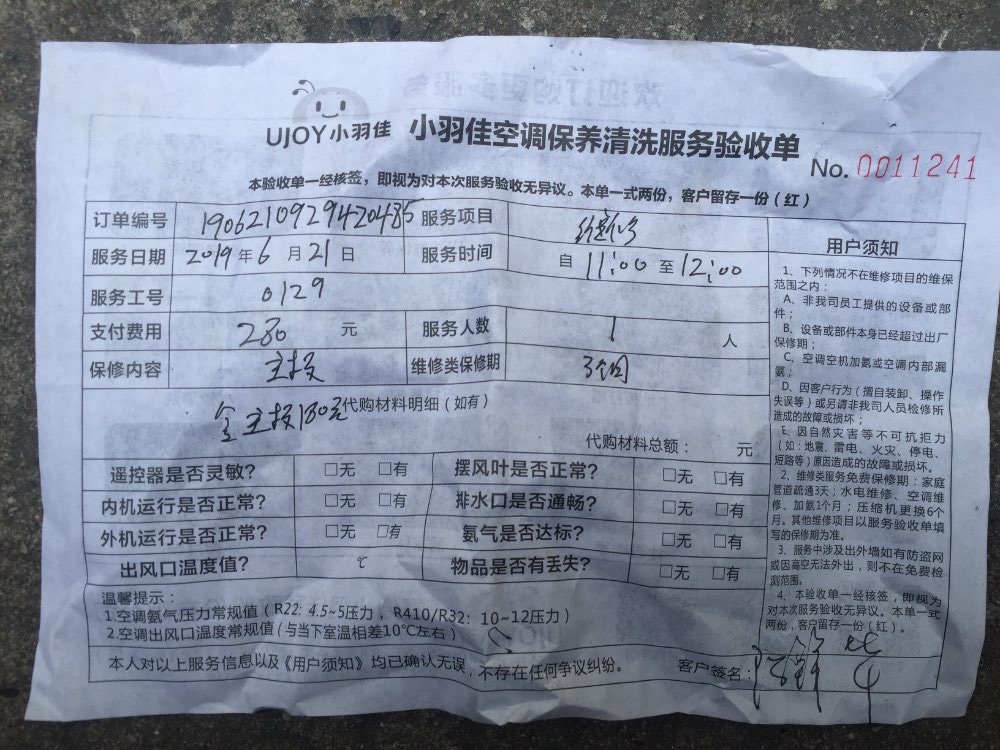 UJOY小羽佳 小羽佳空调保养清洗服务验收单
No. 0011241
本验收单一经核签，即视为对本次服务验收无异议。本单一式两份，客户留存一份（红）
订单编号 1906210929420485 服务项目
服务日期 2019年6月21日 服务时间 自11:00至12:00
服务工号 0129
支付费用 280 元 服务人数 1 人
保修内容 主板 维修类保修期 3个月
主板180元
代购材料明细（如有）
代购材料总额： 元
遥控器是否灵敏？ □无 □有 摆风叶是否正常？ □无 □有
内机运行是否正常？ □无 □有 排水口是否通畅？ □无 □有
外机运行是否正常？ □无 □有 氨气是否达标？ □无 □有
出风口温度值？ ℃ 物品是否有丢失？ □无 □有
温馨提示：
1.空调氨气压力常规值（R22: 4.5~5压力，R410/R32: 10~12压力）
2.空调出风口温度常规值（与当下室温相差10℃左右）
本人对以上服务信息以及《用户须知》均已确认无误，不存在任何争议纠纷。 客户签名：
用户须知
1、下列情况不在维修项目的维保
范围之内：
A、非我司员工提供的设备或部
件；
B、设备或部件本身已经超过出厂
保修期；
C、空调空机加氨或空调内部漏
氨；
D、因客户行为（擅自装卸、操作
失误等）或另请非我司人员检修所
造成的故障或损坏；
E、因自然灾害等不可抗拒力
（如：地震、雷电、火灾、停电、
短路等）原因造成的故障或损坏。
2、维修类服务免费保修期：家庭
管道疏通3天；水电维修、空调维
修、加氨1个月；压缩机更换6个
月。其他维修项目以服务验收单填
写的保修期为准。
3、服务中涉及出外墙如有防盗网
或因高空无法外出，则不在免费检
测范围。
4、本验收单一经核签，即视为
对本次服务验收无异议。本单一式
两份，客户留存一份（红）。